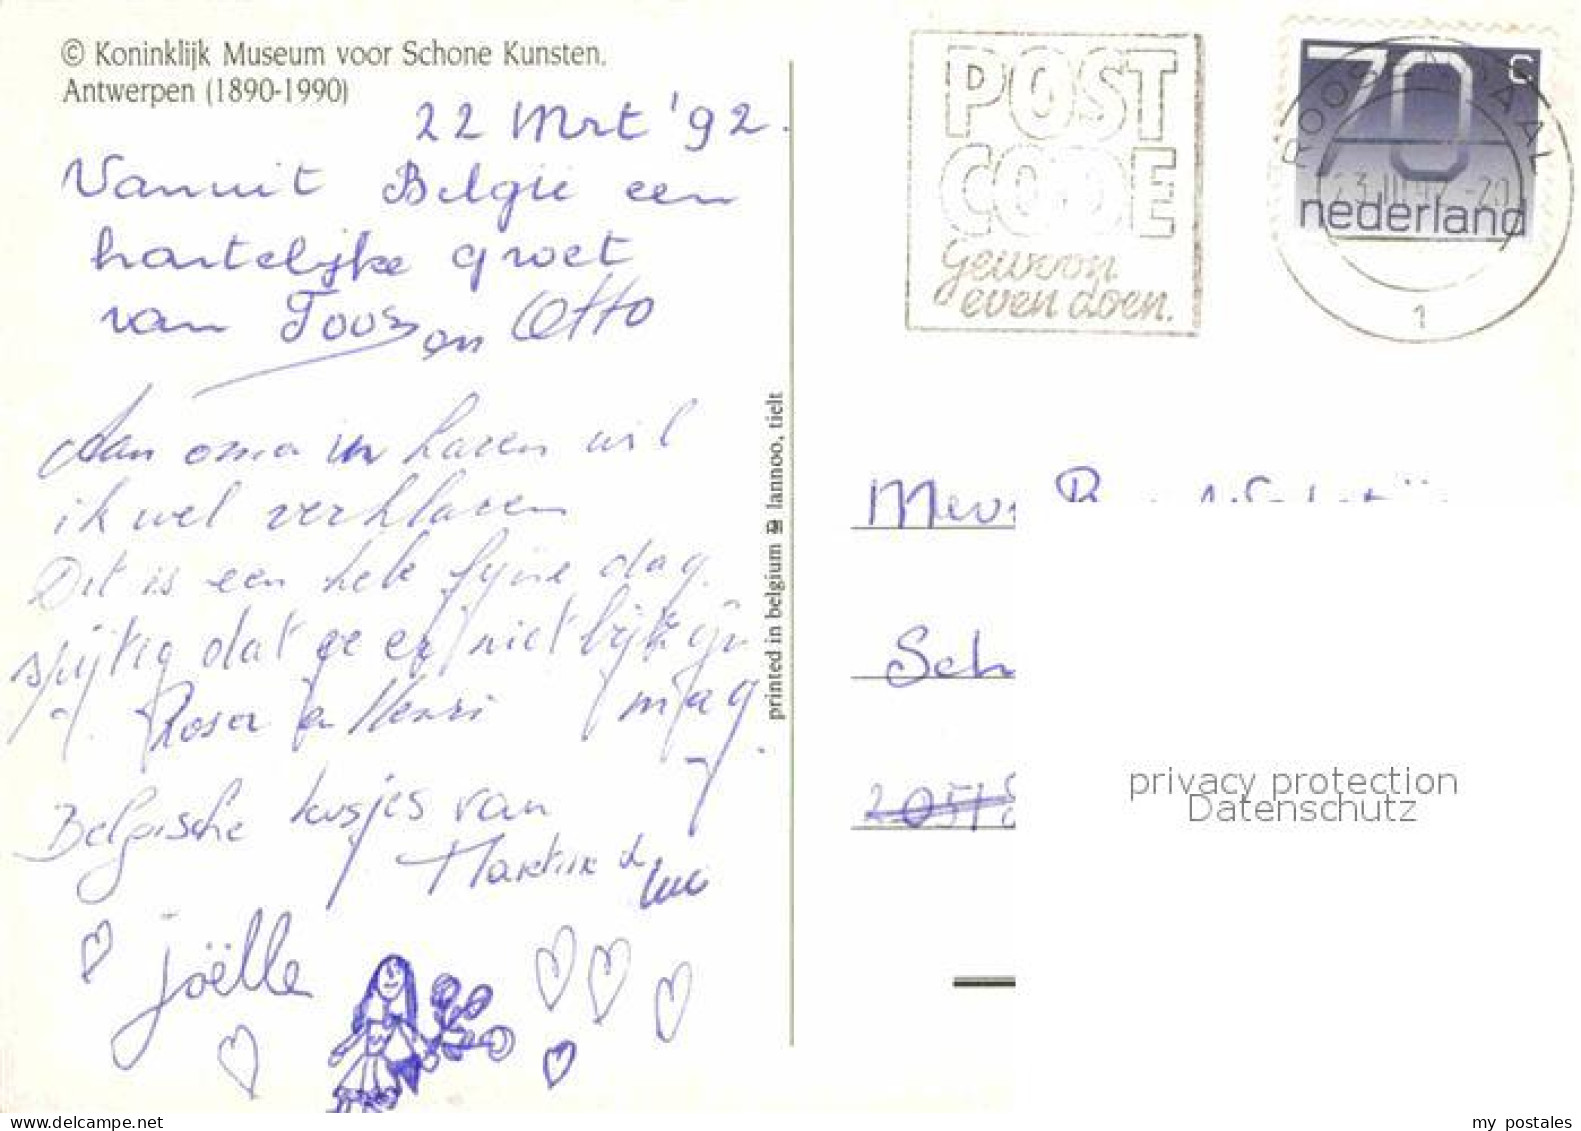 © Koninklijk Museum voor Schone Kunsten.
Antwerpen (1890-1990)
22 Mrt '92.
Vanuit België een
hartelijke groet
van Toos en Otto
Aan oma in haren wil
ik wel verklaren
Dit is een hele fijne dag
spijtig dat ge er niet bij
mag
en Henri
Belgische kusjes van
joëlle
printed in belgium lannoo, tielt
POST
CODE
gewoon
even doen.
70 c
nederland
ROOS AAL
1
Mevr
Sch
privacy protection
Datenschutz
my postales